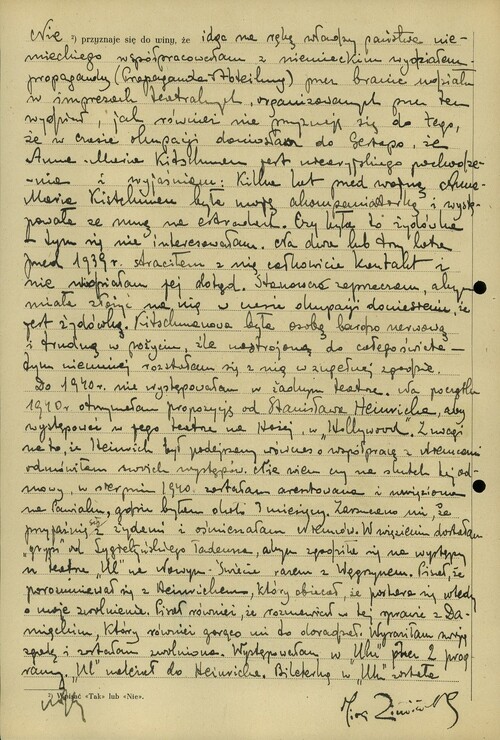 Nie ²) przyznaje się do winy, że idąc na rękę władzy państwa nie-
mieckiego współpracowałam z niemieckim wydziałem
propagandy (Propaganda Abteilung) przez branie udziału
w imprezach teatralnych, organizowanych przez ten
wydział, jak również nie przyznaję się do tego,
że w czasie okupacji doniosłam do Gestapo, że
Anna-Maria Kitschmann jest niearyjskiego pochodze-
nia i wyjaśniam: Kilka lat przed wojną Anna-
Maria Kitschman była moją akompaniatorką i wystę-
powała ze mną na estradzie. Czy była to żydówka
– tym się nie interesowałam. Na dwa lub trzy lata
przed 1939 r. straciłam z nią całkowicie kontakt i
nie widziałam jej dotąd. Stanowczo zaprzeczam, abym
miała złożyć na nią w czasie okupacji doniesienie, że
jest żydówką. Kitschmanova była osobą bardzo nerwową
i trudną w pożyciu, źle nastrojoną do całego świata –
tym niemniej rozstałam się z nią w zupełnej zgodzie.
Do 1940 r. nie występowałam w żadnym teatrze. Na początku
1940 r. otrzymałam propozycję od Stanisława Heinricha, aby
występować w jego teatrze na Hożej, w „Hollywood". Z uwagi
na to, że Heinrich był podejrzany wówczas o współpracę z Niemcami
odmówiłam swoich występów. Nie wiem czy na skutek tej od-
mowy, w sierpniu 1940. zostałam aresztowana i uwięziona
na Pawiaku, gdzie byłam około 3 miesięcy. Zarzucano mi, że
przyjaźnię się z żydami i ośmieszałam Niemców. W więzieniu dostałam
„gryps" od Sygietyńskiego Tadeusza, abym zgodziła się na występy
w teatrze „Ul" na Nowym-Świecie razem z Węgrzynem. Pisał, że
porozumiewał się z Heinrichem, który obiecał, że postara się wtedy
o moje zwolnienie. Pisał również, że rozmawiał w tej sprawie z Da-
mięckim, który również gorąco mi to doradzał. Wyraziłam swoją
zgodę i zostałam zwolniona. Występowałam w „Ulu" przez 2 prog-
ramy. „Ul" należał do Heinricha. Bileterką w „Ulu" została
²) Wpisać «Tak» lub «Nie».